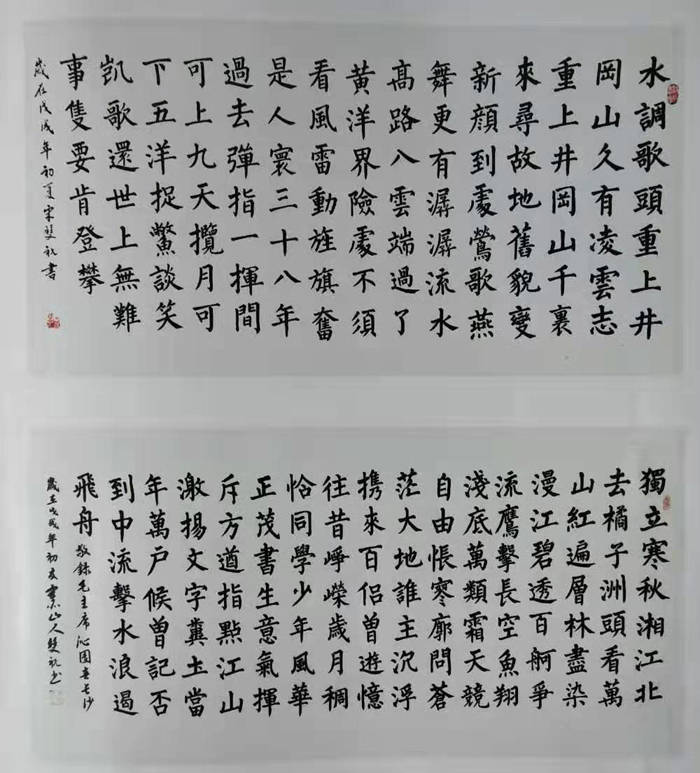 水調歌頭重上井
岡山久有凌雲志
重上井岡山千裏
來尋故地舊貌變
新顔到處鶯歌燕
舞更有潺潺流水
髙路入雲端過了
黄洋界險處不須
看風雷動旌旗奮
是人寰三十八年
過去彈指一揮間
可上九天攬月可
下五洋捉鱉談笑
凱歌還世上無難
事隻要肯登攀
歲在戊戌年初夏宋雙礼書
獨立寒秋湘江北
去橘子洲頭看萬
山紅遍層林盡染
漫江碧透百舸爭
流鷹擊長空魚翔
淺底萬類霜天競
自由悵寥廓問蒼
茫大地誰主沉浮
携來百侣曾遊憶
往昔崢嶸歲月稠
恰同學少年風華
正茂書生意氣揮
斥方遒指點江山
激揚文字糞土當
年萬户候曾記否
到中流擊水浪遏
飛舟 敬錄毛主席沁園春長沙
歲在戊戌年初夏山人雙礼書